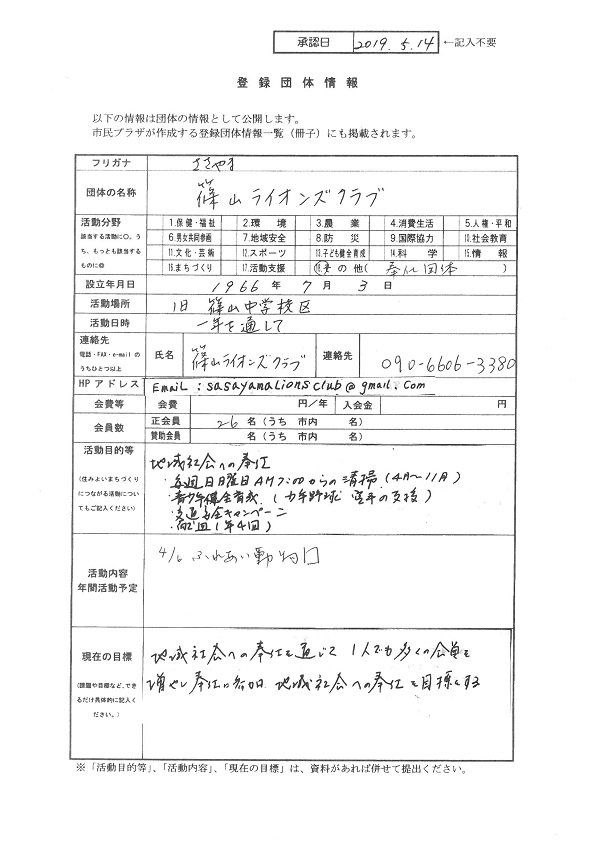 承認日 2019.5.14 ←記入不要
登録団体情報
以下の情報は団体の情報として公開します。
市民プラザが作成する登録団体情報一覧（冊子）にも掲載されます。
フリガナ ささやま
団体の名称 篠山ライオンズクラブ
活動分野
該当する活動に○。うち、もっとも該当するものに◎
1.保健・福祉 2.環境 3.農業 4.消費生活 5.人権・平和
6.男女共同参画 7.地域安全 8.防災 9.国際協力 10.社会教育
11.文化・芸術 12.スポーツ 13.子ども健全育成 14.科学 15.情報
16.まちづくり 17.活動支援 18.その他（奉仕団体）
設立年月日 1966年7月3日
活動場所 旧 篠山中学校区
活動日時 一年を通して
連絡先
電話・FAX・e-mailのうちひとつ以上
氏名 篠山ライオンズクラブ 連絡先 090-6606-3380
HPアドレス Email：sasayamalionsclub@gmail.com
会費等 会費 円／年 入会金 円
会員数 正会員 26名（うち 市内 名）
賛助会員 名（うち 市内 名）
活動目的等
（住みよいまちづくりにつながる活動についてもご記入ください）
地域社会への奉仕
・毎週日曜日AM7:00からの清掃（4月〜11月）
・青少年健全育成（少年野球 等の支援）
・交通安全キャンペーン
（年4回）
活動内容
年間活動予定
4/6 ふれあい動物
現在の目標
（課題や目標など、できるだけ具体的に記入ください。）
地域社会への奉仕を通じて 1人でも多くの会員を
増やし奉仕に参加 地域社会への奉仕を目標とする
※「活動目的等」、「活動内容」、「現在の目標」は、資料があれば併せて提出ください。